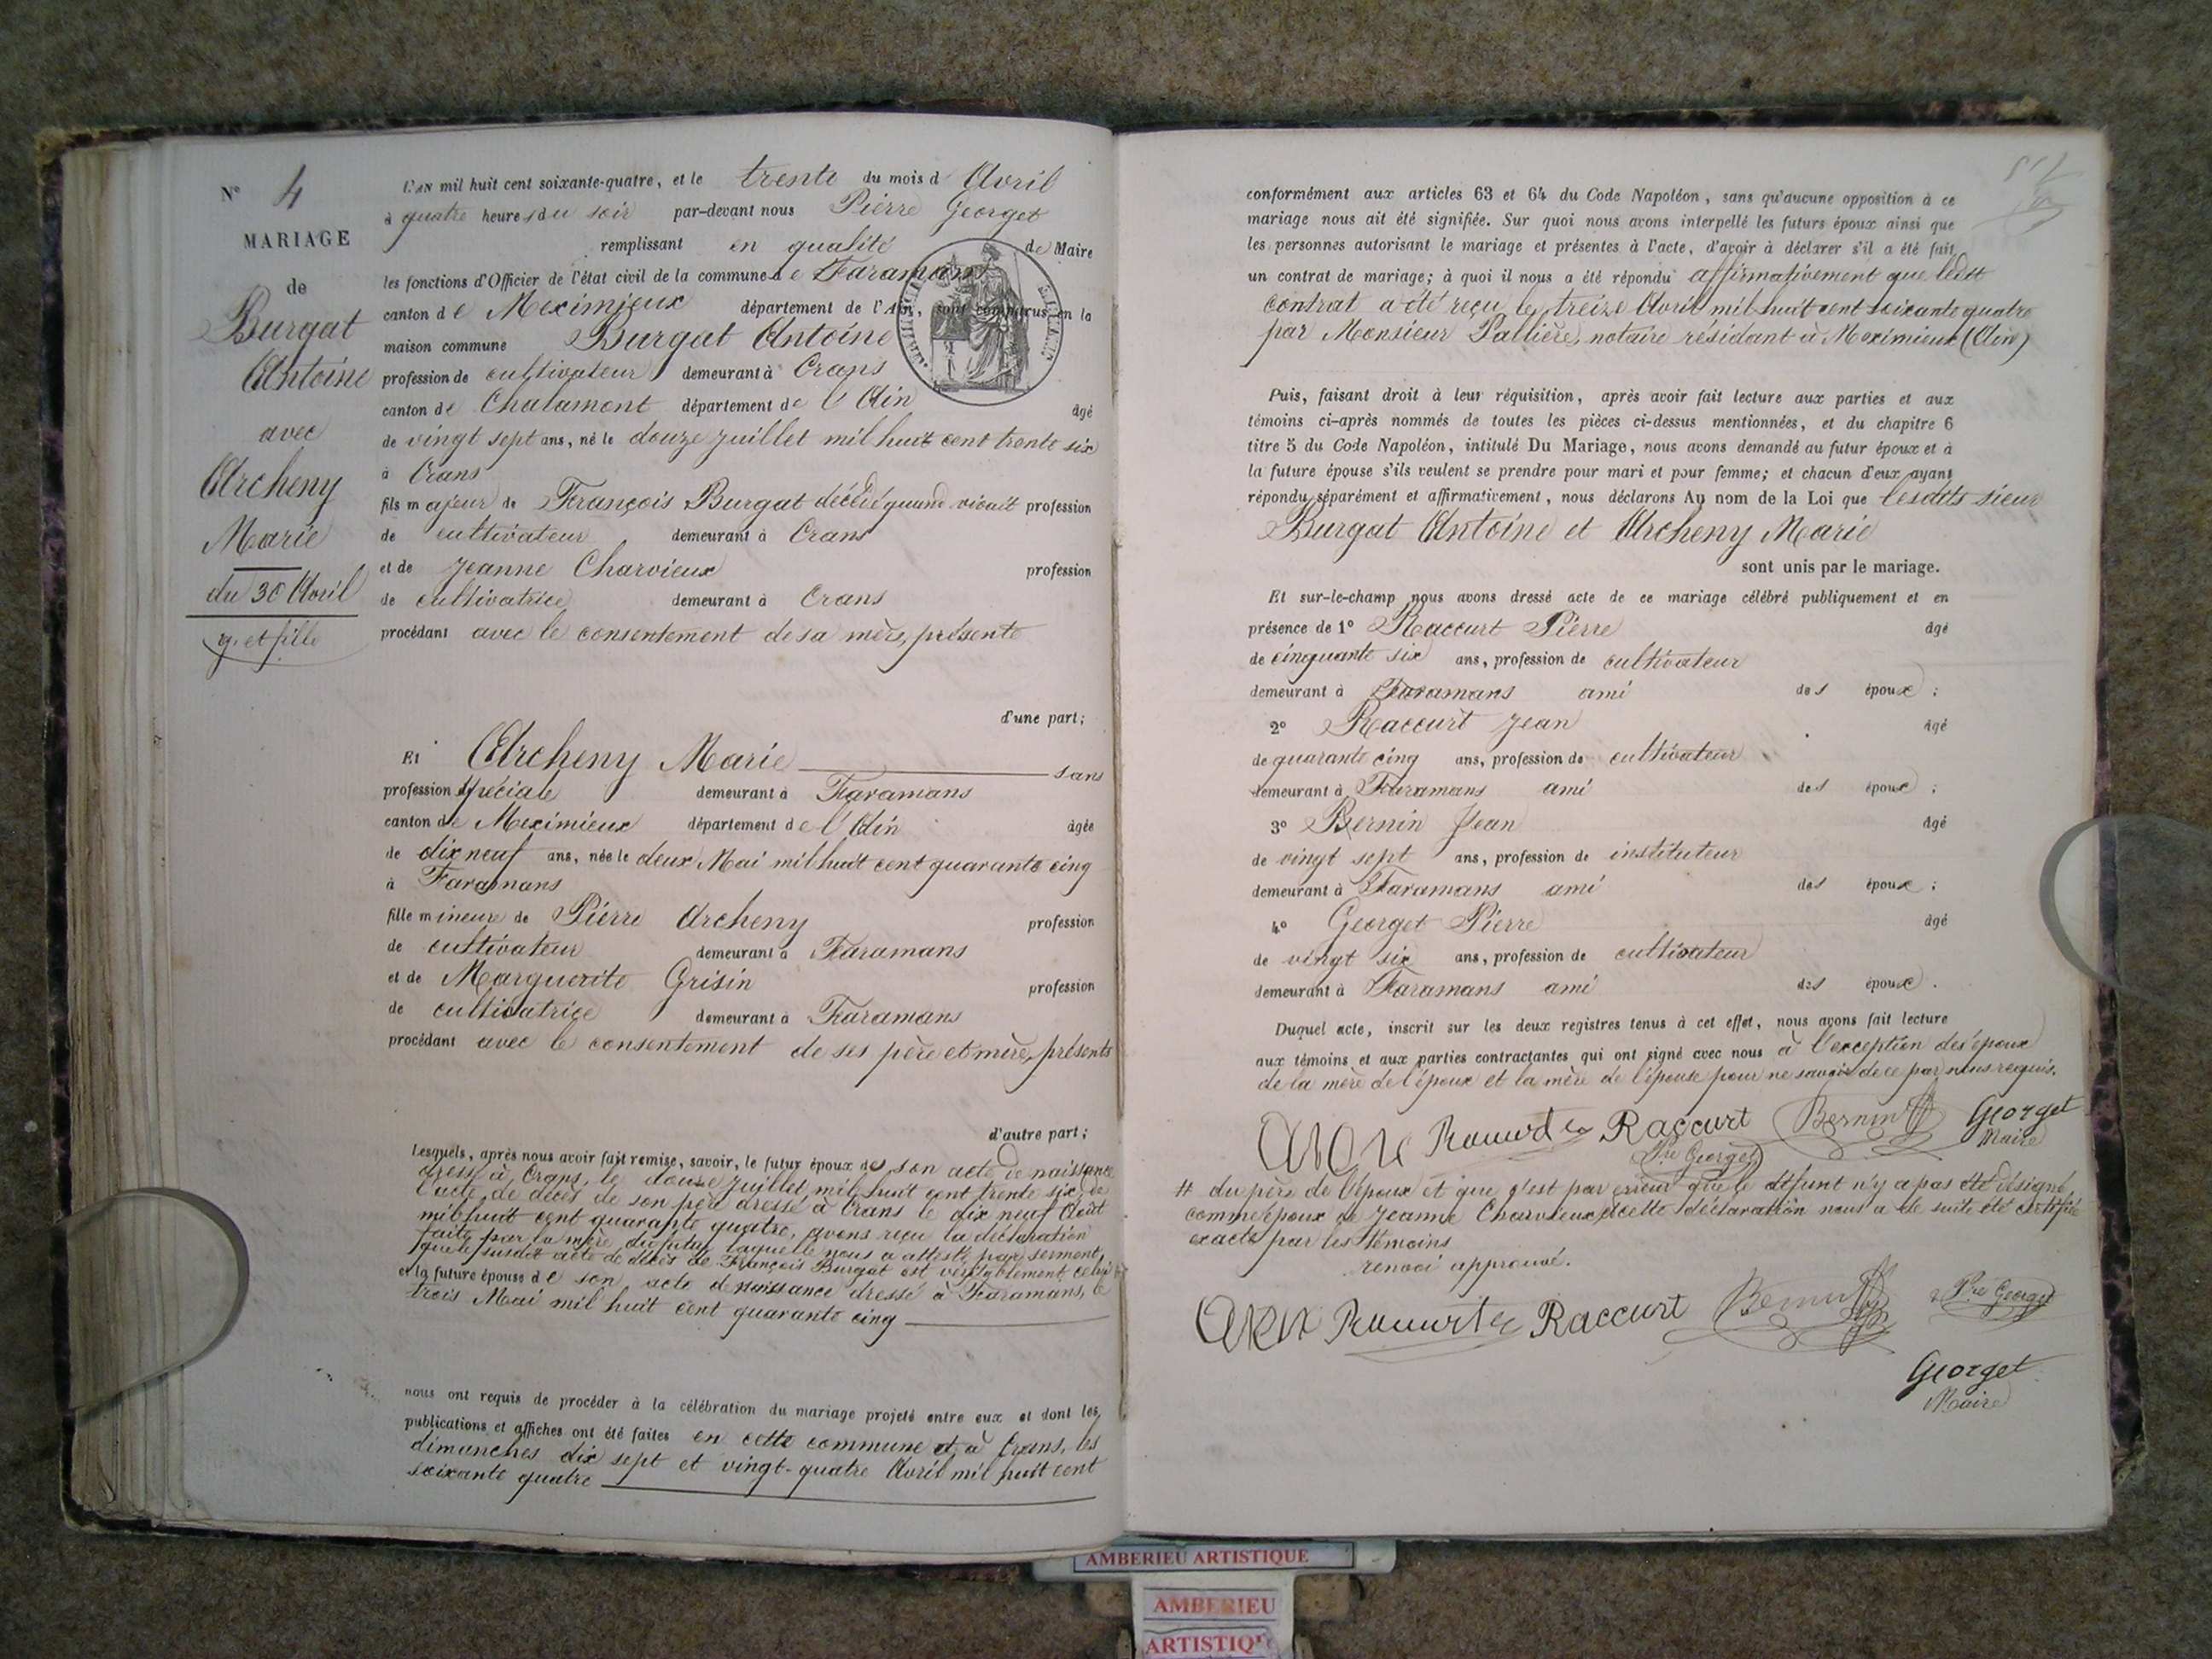 N° 4
MARIAGE
de
Burgat
Antoine
avec
Archeny
Marie
du 30 Avril
g. et fille
L'AN mil huit cent soixante-quatre, et le trente du mois d' Avril
à quatre heures du soir par-devant nous Pierre Georget
remplissant en qualité de Maire
les fonctions d'Officier de l'état civil de la commune de Faramans
canton de Meximieux département de l'Ain, sont comparus en la
maison commune Burgat Antoine
profession de cultivateur demeurant à Crans
canton de Chalamont département de l'Ain âgé
de vingt sept ans, né le douze juillet mil huit cent trente six
à Crans
fils majeur de François Burgat décédé quand vivait profession
de cultivateur demeurant à Crans
et de Jeanne Charvieux profession
de cultivatrice demeurant à Crans
procédant avec le consentement de sa mère, présente
d'une part;
Et Archeny Marie sans
profession spéciale demeurant à Faramans
canton de Meximieux département de l'Ain âgée
de dix neuf ans, née le deux Mai mil huit cent quarante cinq
à Faramans
fille mineure de Pierre Archeny profession
de cultivateur demeurant à Faramans
et de Marguerite Grisin profession
de cultivatrice demeurant à Faramans
procédant avec le consentement de ses père et mère, présents
d'autre part;
Lesquels, après nous avoir fait remise, savoir, le futur époux de son acte de naissance
dressé à Crans, le douze juillet mil huit cent trente six, de
l'acte de décès de son père dressé à Crans le dix neuf Août
mil huit cent quarante quatre, avons reçu la déclaration
faite par la mère du futur laquelle nous a attesté par serment
que le susdit acte de décès de François Burgat est véritablement celui #
et la future épouse de son acte de naissance dressé à Faramans, le
trois Mai mil huit cent quarante cinq
nous ont requis de procéder à la célébration du mariage projeté entre eux et dont les
publications et affiches ont été faites en cette commune et à Crans, les
dimanches dix sept et vingt-quatre Avril mil huit cent
soixante quatre
conformément aux articles 63 et 64 du Code Napoléon, sans qu'aucune opposition à ce
mariage nous ait été signifiée. Sur quoi nous avons interpellé les futurs époux ainsi que
les personnes autorisant le mariage et présentes à l'acte, d'avoir à déclarer s'il a été fait
un contrat de mariage; à quoi il nous a été répondu affirmativement que ledit
contrat a été reçu le treize Avril mil huit cent soixante quatre
par Monsieur Pallière, notaire résidant à Meximieux (Ain)
Puis, faisant droit à leur réquisition, après avoir fait lecture aux parties et aux
témoins ci-après nommés de toutes les pièces ci-dessus mentionnées, et du chapitre 6
titre 5 du Code Napoléon, intitulé Du Mariage, nous avons demandé au futur époux et à
la future épouse s'ils veulent se prendre pour mari et pour femme; et chacun d'eux ayant
répondu séparément et affirmativement, nous déclarons Au nom de la Loi que lesdits sieur
Burgat Antoine et Archeny Marie
sont unis par le mariage.
Et sur-le-champ nous avons dressé acte de ce mariage célébré publiquement et en
présence de 1° Raccurt Pierre âgé
de cinquante six ans, profession de cultivateur
demeurant à Faramans ami des époux;
2° Raccurt Jean âgé
de quarante cinq ans, profession de cultivateur
demeurant à Faramans ami des époux;
3° Bernin Jean âgé
de vingt sept ans, profession de instituteur
demeurant à Faramans ami des époux;
4° Georget Pierre âgé
de vingt six ans, profession de cultivateur
demeurant à Faramans ami des époux.
Duquel acte, inscrit sur les deux registres tenus à cet effet, nous avons fait lecture
aux témoins et aux parties contractantes qui ont signé avec nous à l'exception des époux
de la mère de l'époux et la mère de l'épouse pour ne savoir de ce par nous requis.
Raccurt Bernin Georget
Maire
Pre Georget
# du père de l'époux et que c'est par erreur que le défunt n'y a pas été désigné
comme époux de Jeanne Charvieux, et cette déclaration nous a de suite été certifiée
exacte par les témoins
renvoi approuvé.
Raccurt Bernin Pre Georget
Georget
Maire
AMBERIEU ARTISTIQUE
AMBERIEU
ARTISTIQU